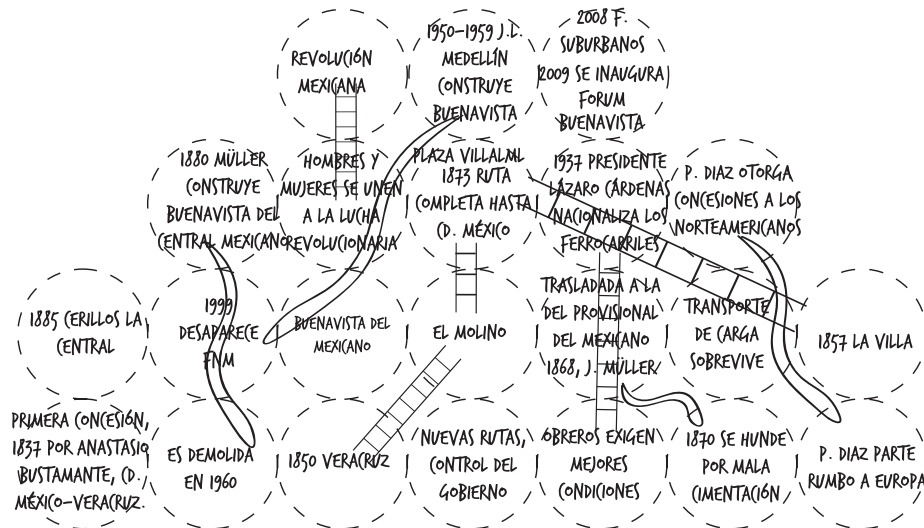 REVOLUCIÓN
MEXICANA
1950-1959 J.L.
MEDELLÍN
CONSTRUYE
BUENAVISTA
2008 F.
SUBURBANOS
2009 SE INAUGURA
FORUM
BUENAVISTA
1880 MÜLLER
CONSTRUYE
BUENAVISTA DEL
CENTRAL MEXICANO
HOMBRES Y
MUJERES SE UNEN
A LA LUCHA
REVOLUCIONARIA
PLAZA VILLALML
1873 RUTA
COMPLETA HASTA
CD. MÉXICO
1937 PRESIDENTE
LÁZARO CÁRDENAS
NACIONALIZA LOS
FERROCARRILES
P. DIAZ OTORGA
CONCESIONES A LOS
NORTEAMERICANOS
1885 CERILLOS LA
CENTRAL
1999
DESAPARECE
FNM
BUENAVISTA DEL
MEXICANO
EL MOLINO
TRASLADADA A LA
DEL PROVISIONAL
DEL MEXICANO
1868, J. MÜLLER
TRANSPORTE
DE CARGA
SOBREVIVE
1857 LA VILLA
PRIMERA CONCESIÓN,
1837 POR ANASTASIO
BUSTAMANTE, CD.
MÉXICO-VERACRUZ.
ES DEMOLIDA
EN 1960
1850 VERACRUZ
NUEVAS RUTAS,
CONTROL DEL
GOBIERNO
OBREROS EXIGEN
MEJORES
CONDICIONES
1870 SE HUNDE
POR MALA
CIMENTACIÓN
P. DIAZ PARTE
RUMBO A EUROPA